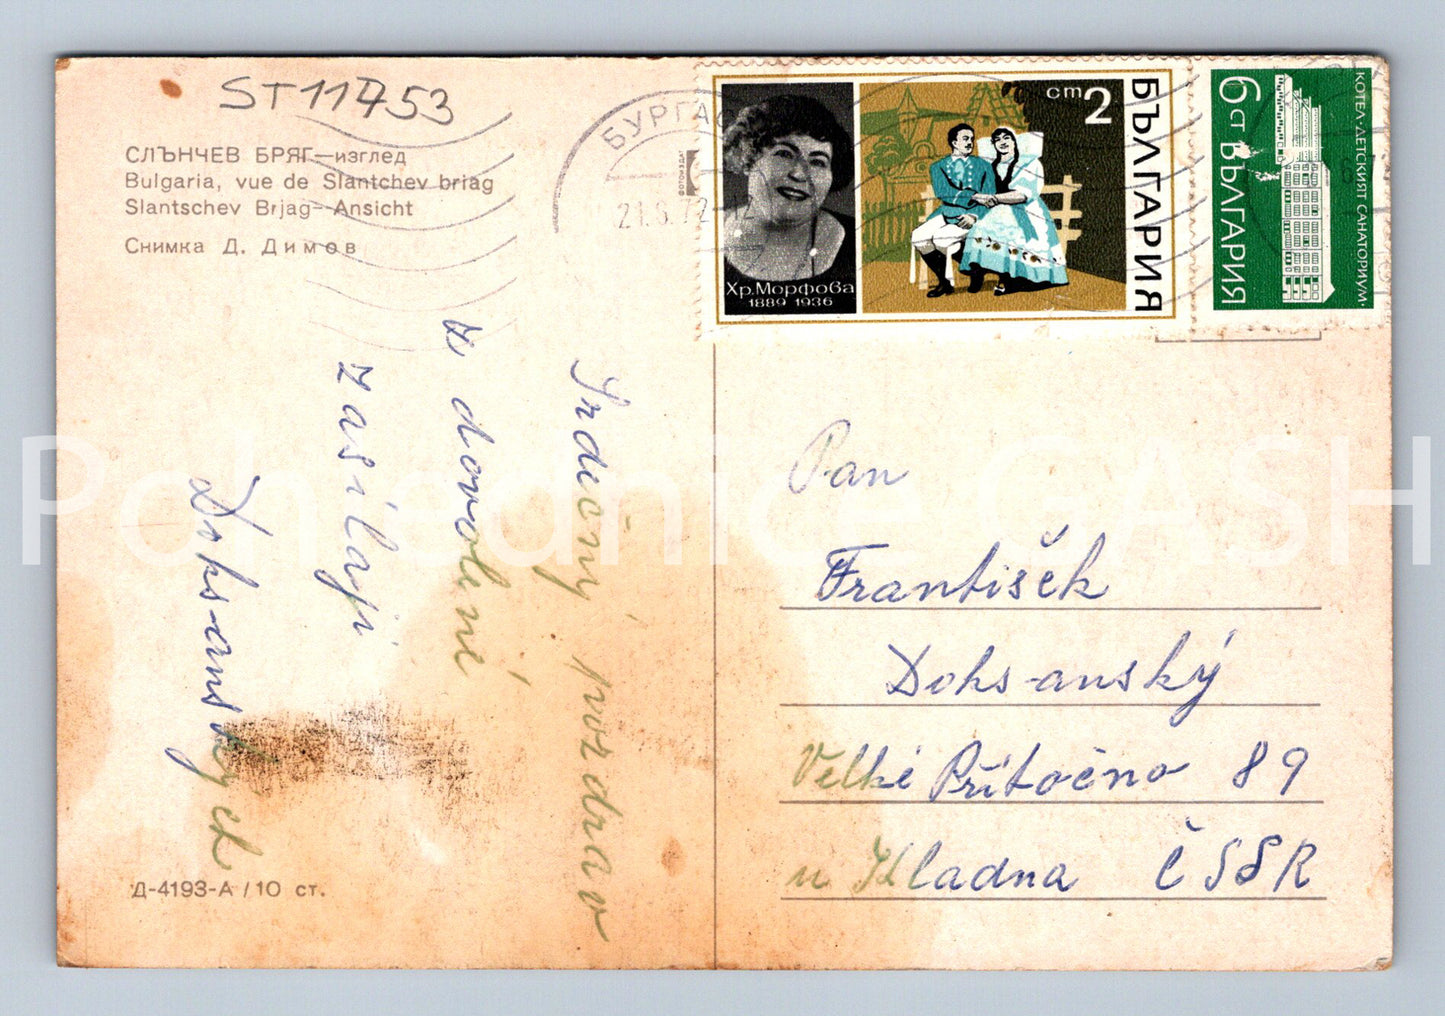 ST11753
СЛЪНЧЕВ БРЯГ—изглед
Bulgaria, vue de Slantchev briag
Slantschev Brjag—Ansicht
Снимка Д. Димов
БУРГАС
21.8.72-12
Хр. Морфова
1889 1936
ст 2
БЪЛГАРИЯ
6 СТ БЪЛГАРИЯ
КОТЕЛ·ДЕТСКИЯТ САНАТОРИУМ·
Srdečný pozdrav
z dovolené
zasílají
Doksanských
Д-4193-А / 10 ст.
Pan
František
Doksanský
Velké Přítočno 89
u Kladna ČSSR
Pohlednice GASH